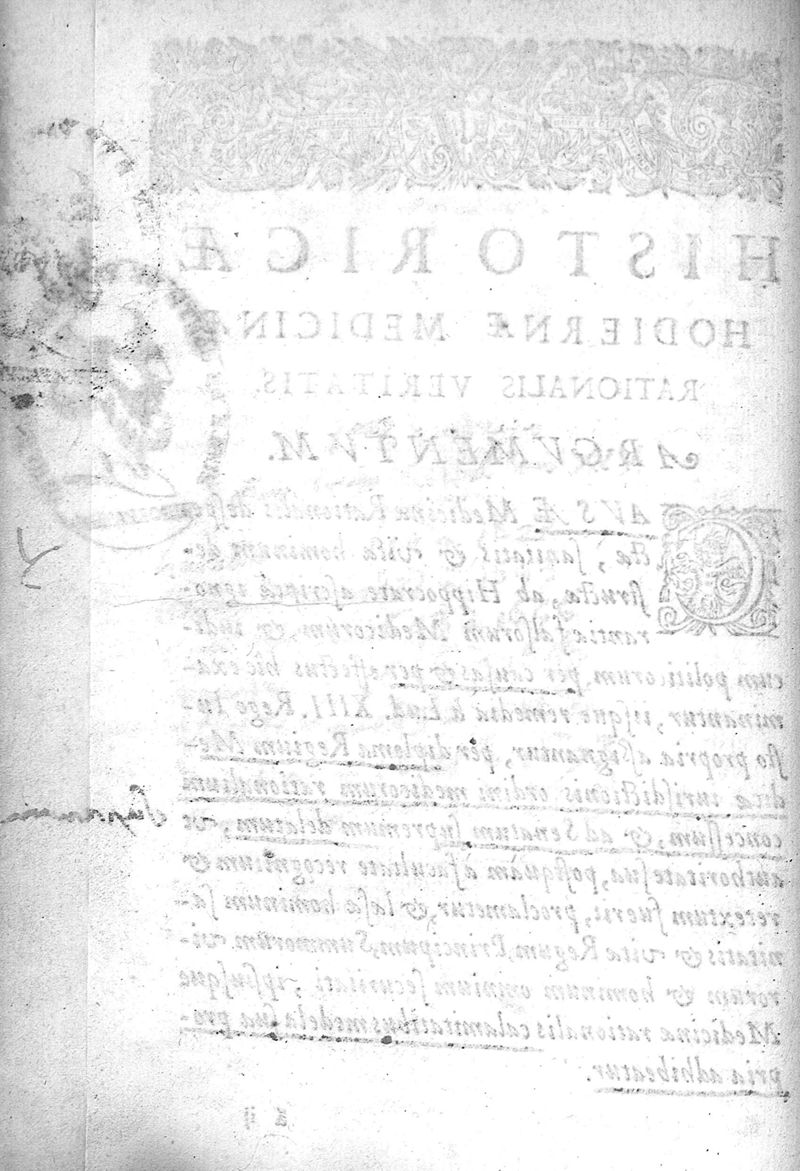 HISTORICÆ
HODIERNÆ MEDICINÆ
RATIONALIS VERITATIS.
ARGVMENTVM.
AVSÆ Medicinæ Rationalis
ctæ, sanitatis & vitæ hominum de-
structæ, ab Hippocrate ascriptæ igno-
rantia falsorum Medicorum, & iudi-
cum politicorum, per causas & per effectus hic exa-
minantur, iisque remedia à Lud. XIII. Rege Iu-
sto propria assignantur, per diploma Regium Me-
dicæ iurisdictionis ordini medicorum rationalium
concessum, & ad Senatum supremum delatum, vt
authoritate sua, postquàm à facultate recognitum &
retextum fuerit, proclametur, & læsæ hominum sa-
nitatis & vitæ Regum, Principum, Summorum vi-
rorum & hominum omnium securitati, ipsiusque
Medicinæ rationalis calamitatibus medela sua pro-
pria adhibeatur.
ã ij